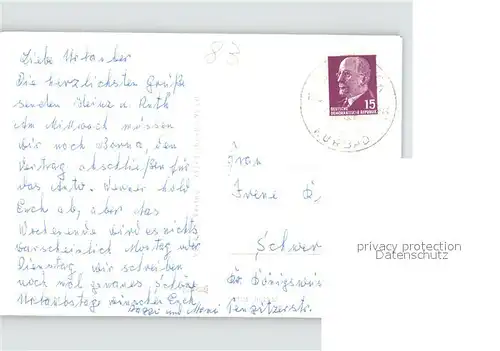 83
Liebe Urlauber
Die herzlichsten Grüße
senden Heinz u. Ruth
Am Mittwoch müssen
wir noch Borna, den
Vertrag abschließen für
das Auto. Werner hold
Euch ab, aber das
Wochenende wird es nichts
warscheinlich Montag oder
Dienstag, wir schreiben
noch mal genaues, schöne
Urlaubstage wünschen Euch
und
DEUTSCHE
DEMOKRATISCHE REPUBLIK
15
KURBAD
Frau
Irene
Schwer
privacy protection
Datenschutz